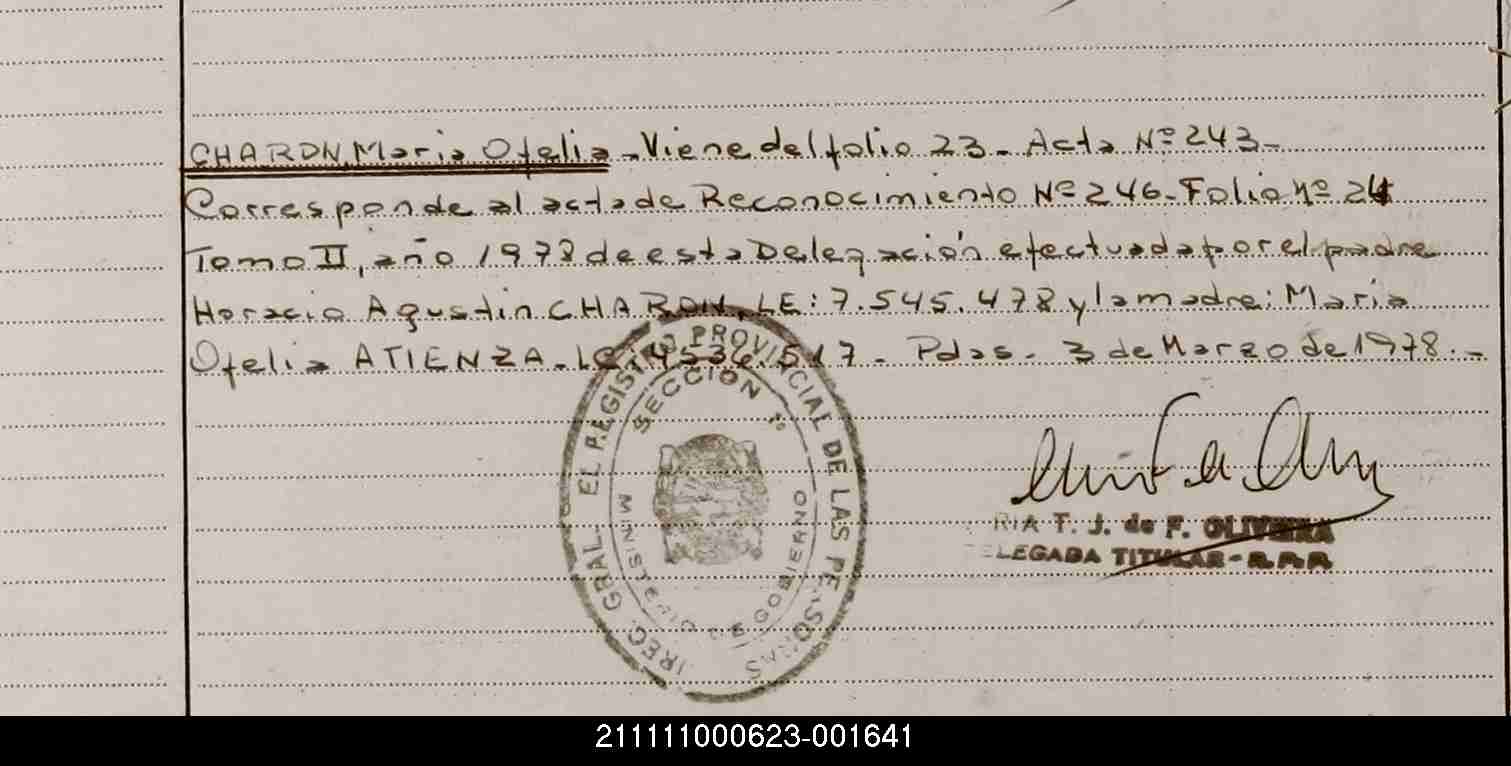 CHARON, Maria Ofelia - Viene del folio 23 - Acta Nº 243 -
Corresponde al acta de Reconocimiento Nº 246 - Folio Nº 24
Tomo II, año 1978 de esta Delegación efectuada por el padre
Horacio Agustin CHARON, LE: 7.545.478 y la madre: Maria
Ofelia ATIENZA - LC: 4536.517 - Pdas - 3 de Marzo de 1978.-
IREC. GRAL. EL REGISTRO PROVINCIAL DE LAS PERSONAS
SECCION
MINISTERIO DE GOBIERNO
RIA T. J. de F. OLIVEIRA
ELEGADA TITULAR - R.P.P.
211111000623-001641